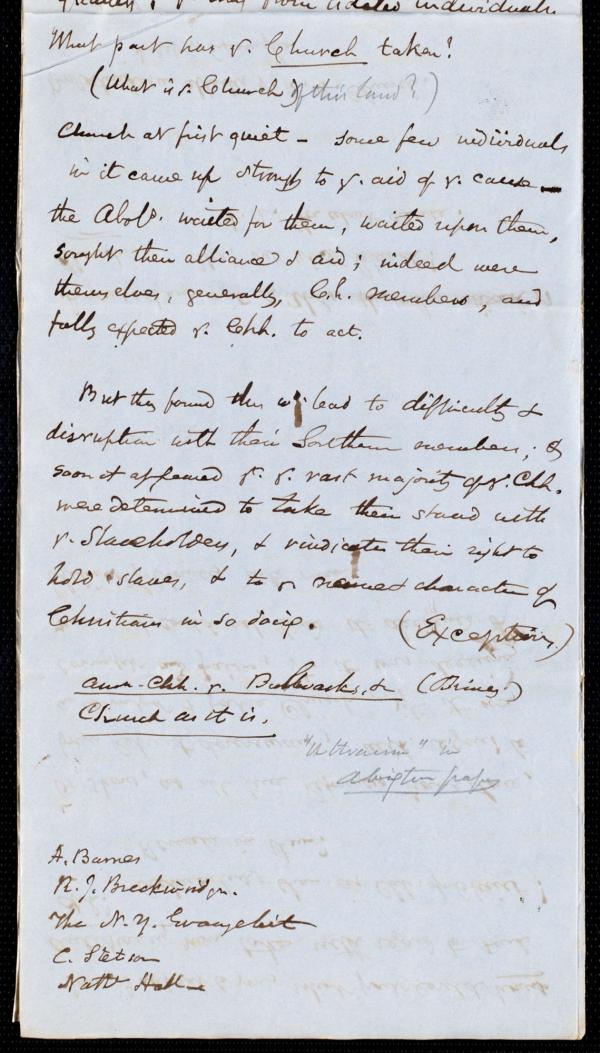 individuals.
What part has y. Church taken?
(What is y. Church) of this land?)
Church at first quiet – some few individuals
in it came up strongly to y. aid of y. cause –
the Abolts. waited for them, waited upon them,
sought their alliance & aid; indeed were
themselves, generally, Ch. members, and
fully expected y. Chh. to act.
But they found this wd. lead to difficulty &
disruption with their Southern members; &
soon it appeared yt. y. vast majority of y. Chh.
were determined to take their stand with
y. Slaveholders, & vindicate their right to
hold slaves, & to y. name & character of
Christians in so doing. (Exceptions.)
Amn. Chh. y. Bulwarks, &c (Birney)
Church as it is.
in
Abington paper
A. Barnes
R. J. Breckinridge.
The N. Y. Evangelist
C. Stetson
Nathl. Hall